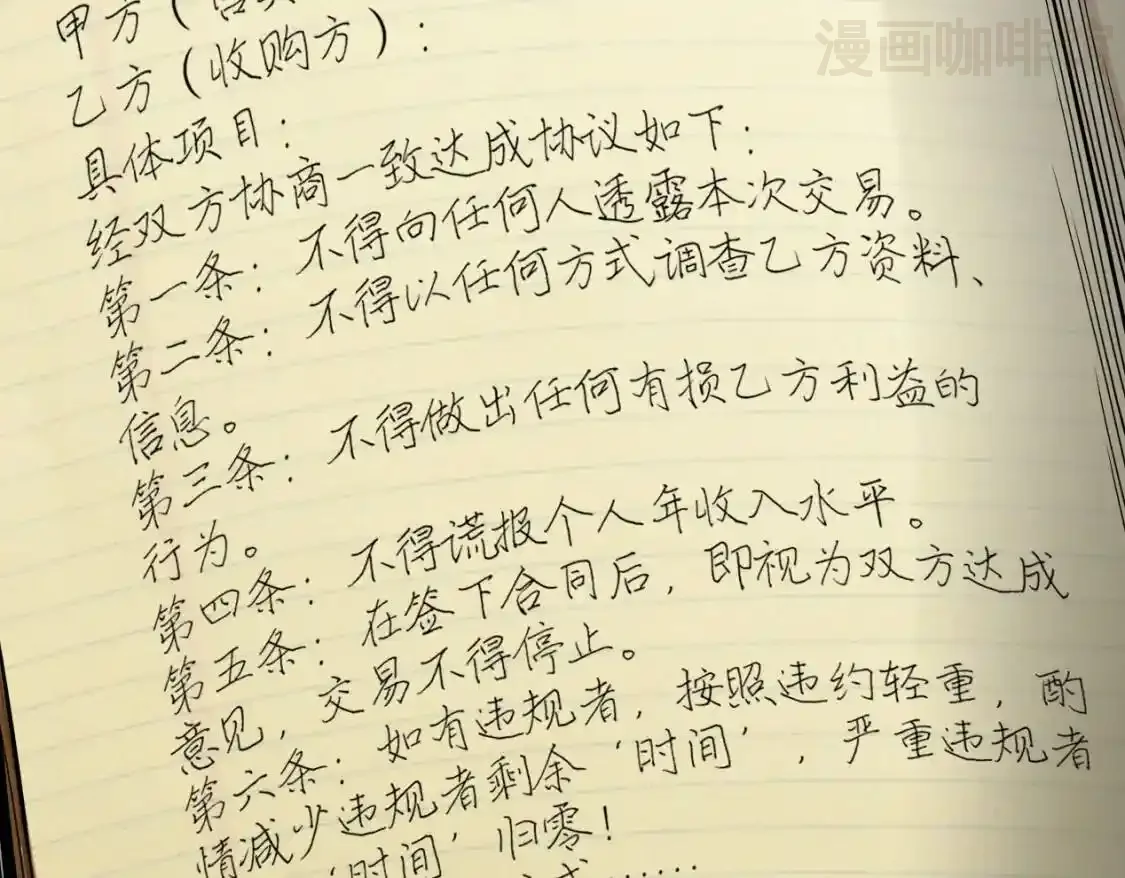 漫画咖啡
甲方（
乙方（收购方）：
具体项目：
经双方协商一致达成协议如下：
第一条：不得向任何人透露本次交易。
第二条：不得以任何方式调查乙方资料、
信息。
第三条：不得做出任何有损乙方利益的
行为。
第四条：不得谎报个人年收入水平。
第五条：在签下合同后，即视为双方达成
意见，交易不得停止。
第六条：如有违规者，按照违约轻重，酌
情减少违规者剩余‘时间’，严重违规者
‘时间’归零！